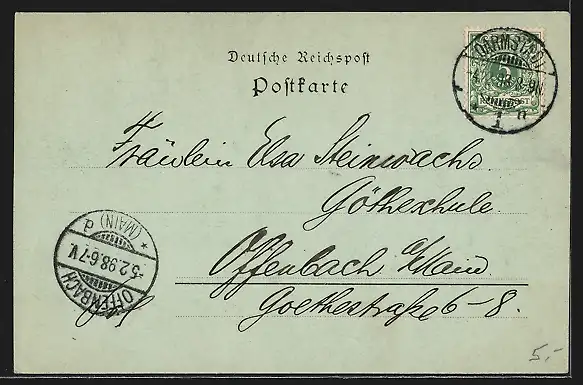 Deutsche Reichspost
Postkarte
DARMSTADT
2-9N.
1 n
Fräulein Elsa Steinwachs.
Götheschule.
Offenbach a/Main
Goethestraße 6-8.
OFFENBACH
5.2.98.6-7V.
(MAIN) d
5,-